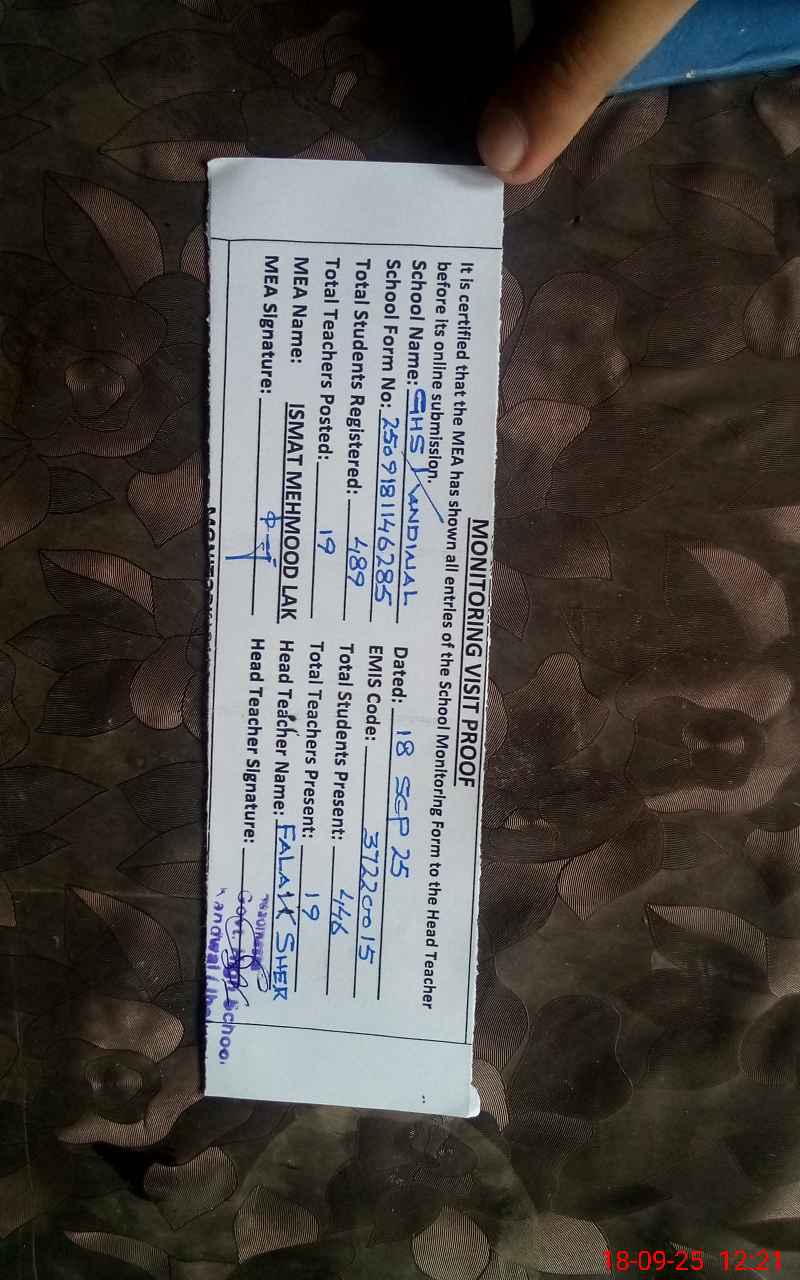 MONITORING VISIT PROOF
It is certified that the MEA has shown all entries of the School Monitoring Form to the Head Teacher
before its online submission.
School Name: GHS KANDIWAL Dated: 18 SEP 25
School Form No: 25091811146285 EMIS Code: 37220015
Total Students Registered: 489 Total Students Present: 446
Total Teachers Posted: 19 Total Teachers Present: 19
MEA Name: ISMAT MEHMOOD LAK Head Teacher Name: FALAK SHER
MEA Signature: Head Teacher Signature:
Govt. High School
Kandwal
18-09-25 12:21